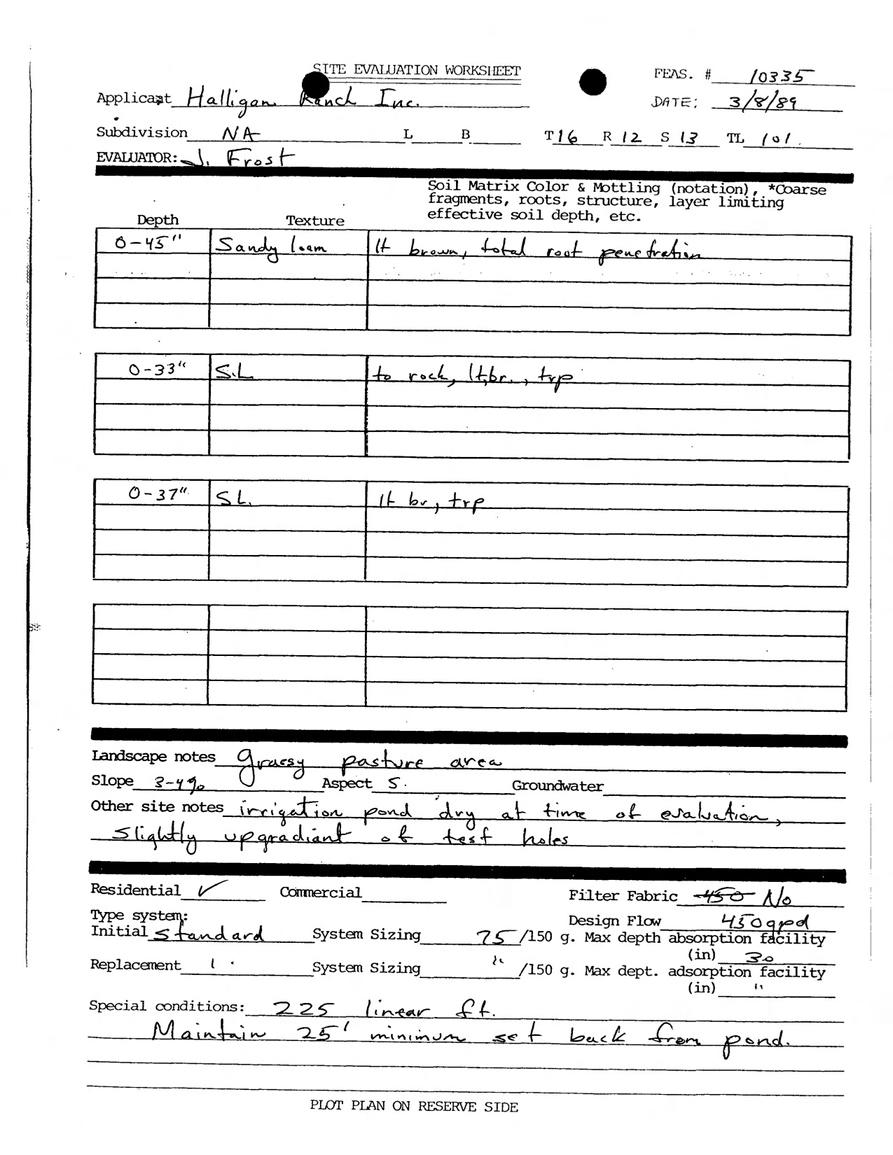 SITE EVALUATION WORKSHEET
FEAS. # 10335
Applicant Halligan Ranch Inc.
DATE: 3/8/89
Subdivision NA L B T16 R 12 S 13 TL 101.
EVALUATOR: J. Frost
Soil Matrix Color & Mottling (notation), *Coarse
fragments, roots, structure, layer limiting
effective soil depth, etc.
Depth Texture
0-45" Sandy loam lt brown, total root penetration
0-33" S.L to rock, lt,br., trp
0-37" SL. lt br, trp
Landscape notes grassy pasture area
Slope 3-4% Aspect S. Groundwater
Other site notes irrigation pond dry at time of evaluation,
slightly upgradiant of test holes
Residential ✓ Commercial Filter Fabric 450 No
Type system: Design Flow 450gpd
Initial Standard System Sizing 75 /150 g. Max depth absorption facility
(in) 30
Replacement " System Sizing " /150 g. Max dept. adsorption facility
(in) "
Special conditions: 225 linear ft.
Maintain 25' minimum set back from pond.
PLOT PLAN ON RESERVE SIDE